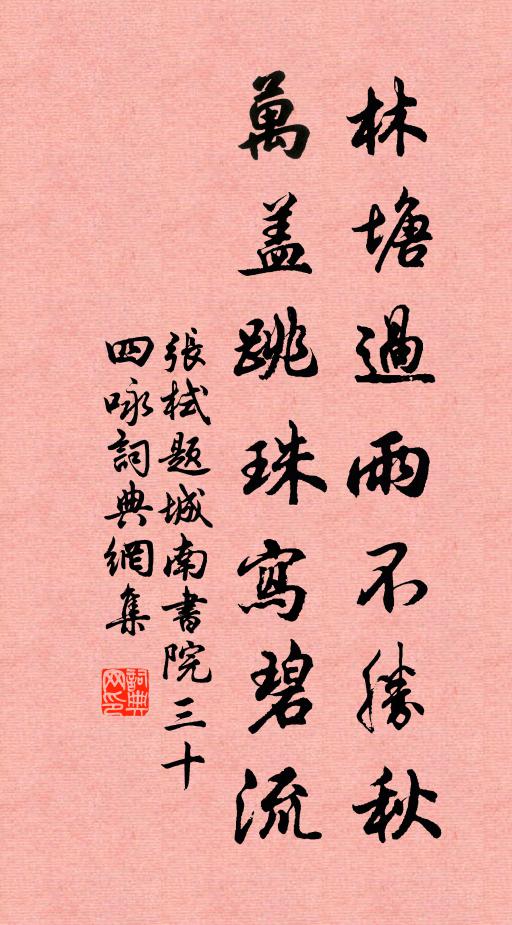 林塘過雨不勝秋
萬盖跳珠寫碧流
張栻題城南書院三十
四咏詞典網集
詞典
网印